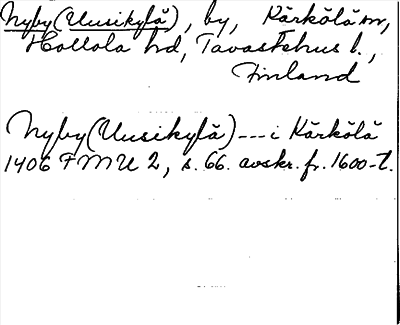 Nyby (Uusikylä), by, Kärkölä sn,
Hollola hd, Tavastehus l.,
Finland
Nyby (Uusikylä) --- i Kärkölä
1406 FMU 2, s. 66. avskr. fr. 1600-t.